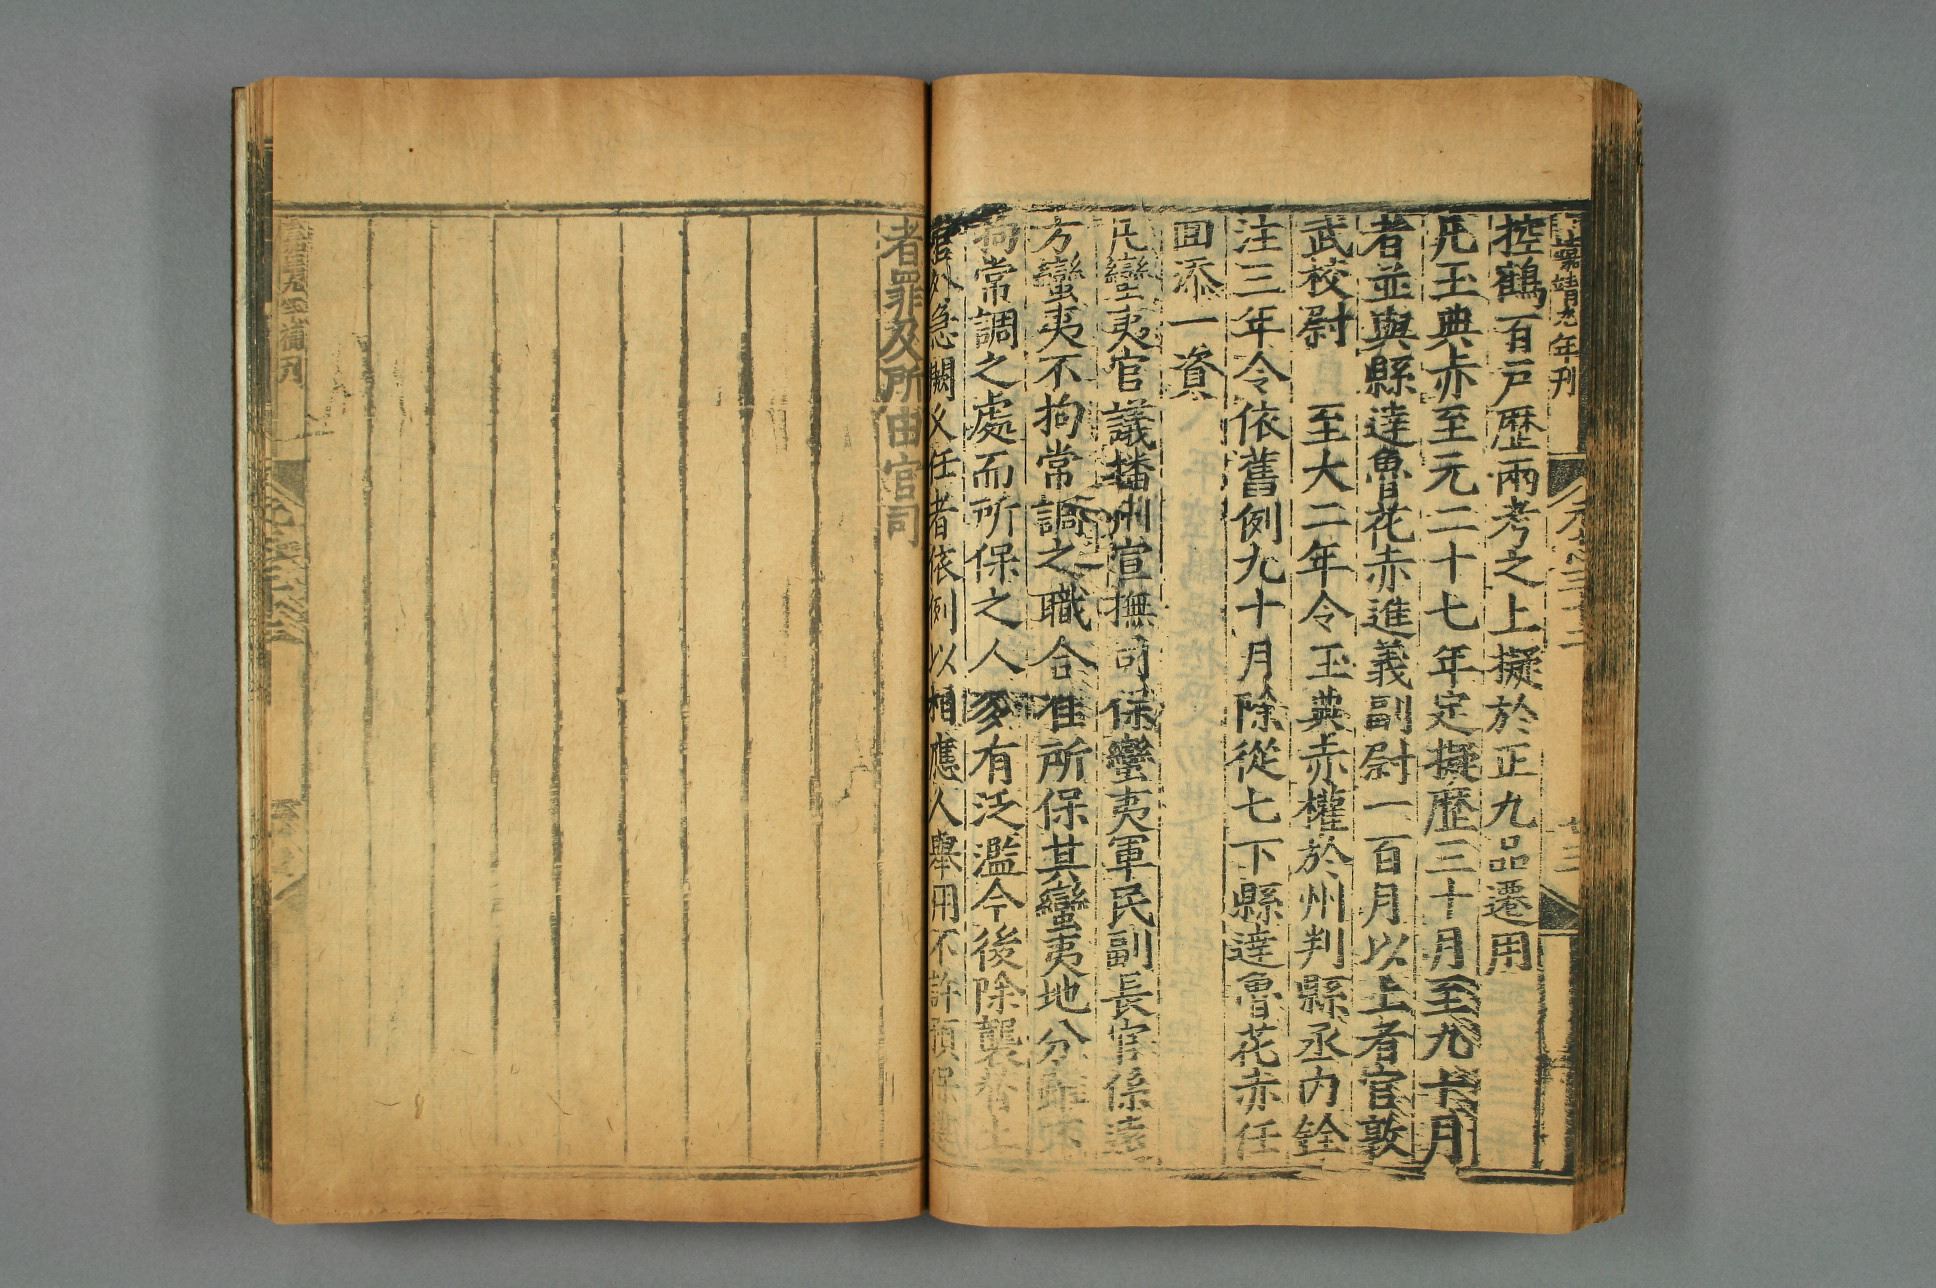 嘉靖九年刊
元志三十二
廿三
控鶴百戶歷兩考之上擬於正九品遷用
凡玉典赤至元二十七年定擬歷三十月至九十月
者並與縣達魯花赤進義副尉一百月以上者官敦
武校尉 至大二年令玉典赤權於州判縣丞內銓
注三年令依舊例九十月除從七下縣達魯花赤任
回添一資
凡蠻夷官議播州宣撫司保蠻夷軍民副長官係遠
方蠻夷不拘常調之職合准所保其蠻夷地分雖不
拘常調之處而所保之人多有泛濫今後除襲替土
官外急闕久任者依例以相應人舉用不許預保違
者罪及所由官司
嘉靖九年補刊